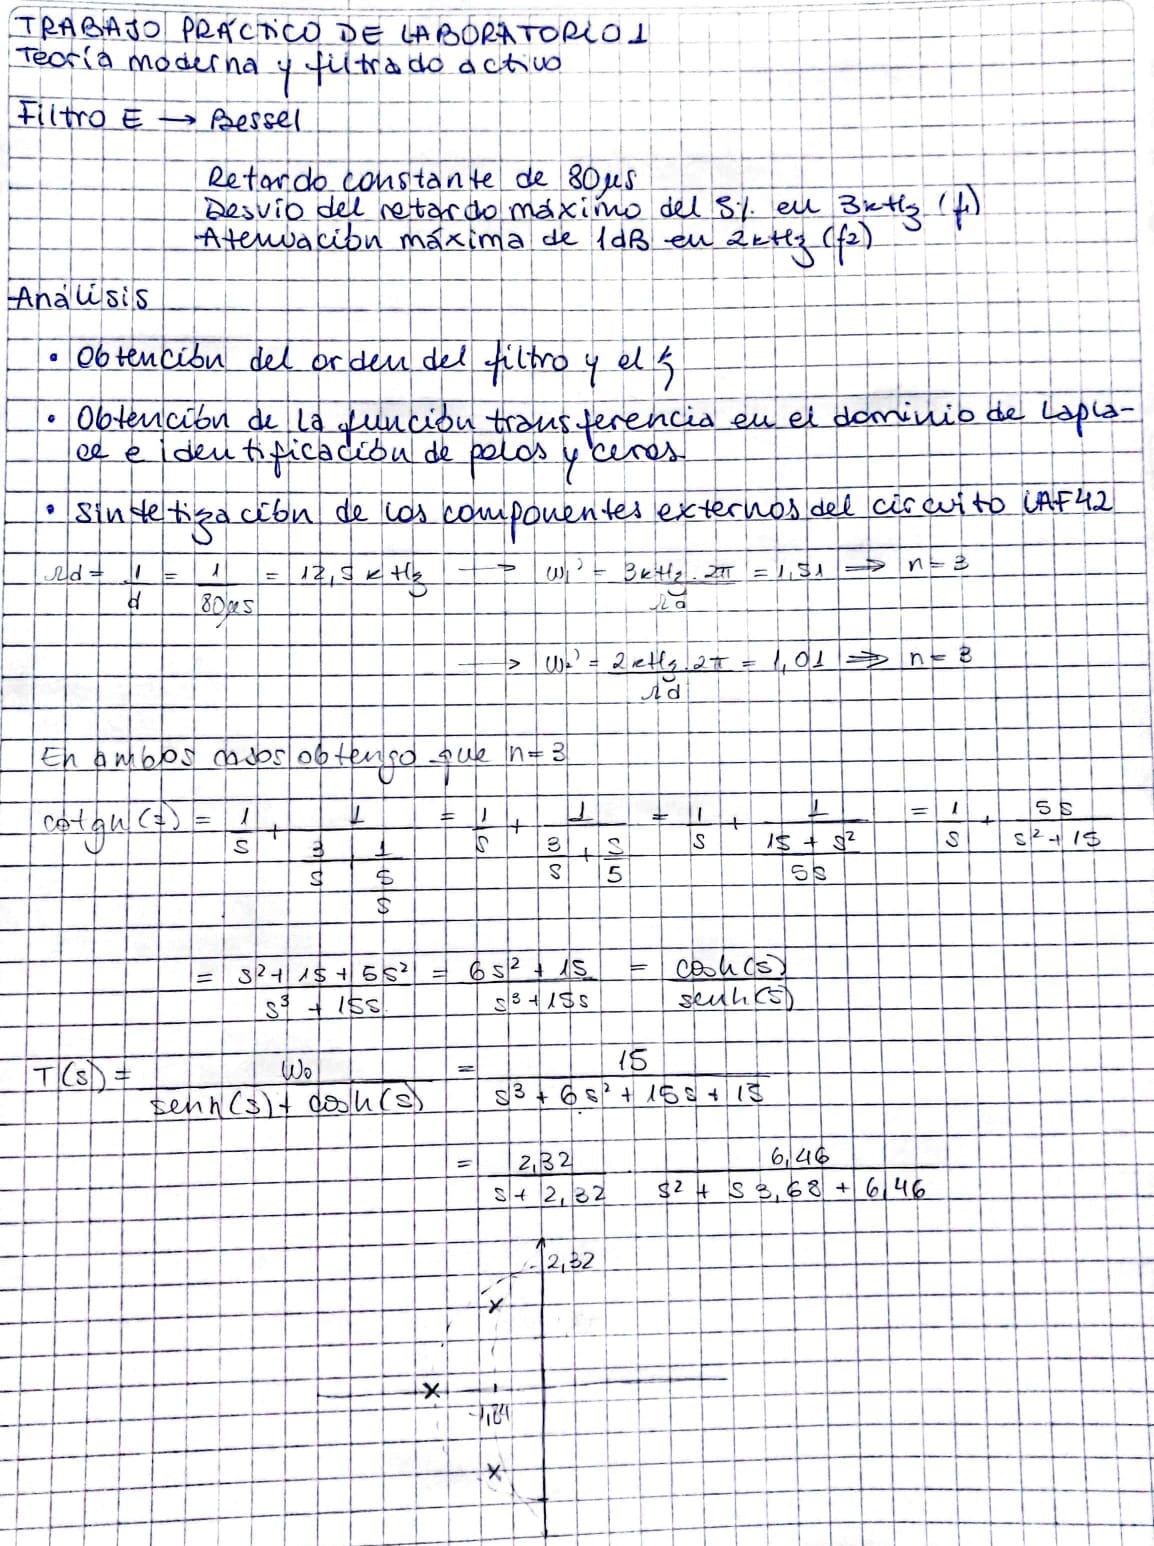 TRABAJO PRÁCTICO DE LABORATORIO 1
Teoría moderna y filtrado activo
Filtro E → Bessel
Retardo constante de 80μs
Desvío del retardo máximo del 5% en 3kHz (f1)
Atenuación máxima de 1dB en 2kHz (f2)
Análisis
• Obtención del orden del filtro y el ξ
• Obtención de la función transferencia en el dominio de Lapla-
ce e identificación de polos y ceros
• Sintetización de los componentes externos del circuito UAF42
Ωd = 1/d = 1/80μs = 12,5 kHz → ω1' = 3kHz.2π/Ωd = 1,51 ⇒ n = 3
→ ω2' = 2kHz.2π/Ωd = 1,01 ⇒ n = 3
En ambos casos obtengo que n=3
cotgh(z) = 1/s + 1/(3/s + 1/(5/s)) = 1/s + 1/(3/s + s/5) = 1/s + 1/((15 + s²)/5s) = 1/s + 5s/(s² + 15)
= (s² + 15 + 5s²)/(s³ + 15s) = (6s² + 15)/(s³ + 15s) = cosh(s)/senh(s)
T(s) = ω0/(senh(s) + cosh(s)) = 15/(s³ + 6s² + 15s + 15)
= 2,32/(s + 2,32) . 6,46/(s² + s 3,68 + 6,46)
2,32
-1,84